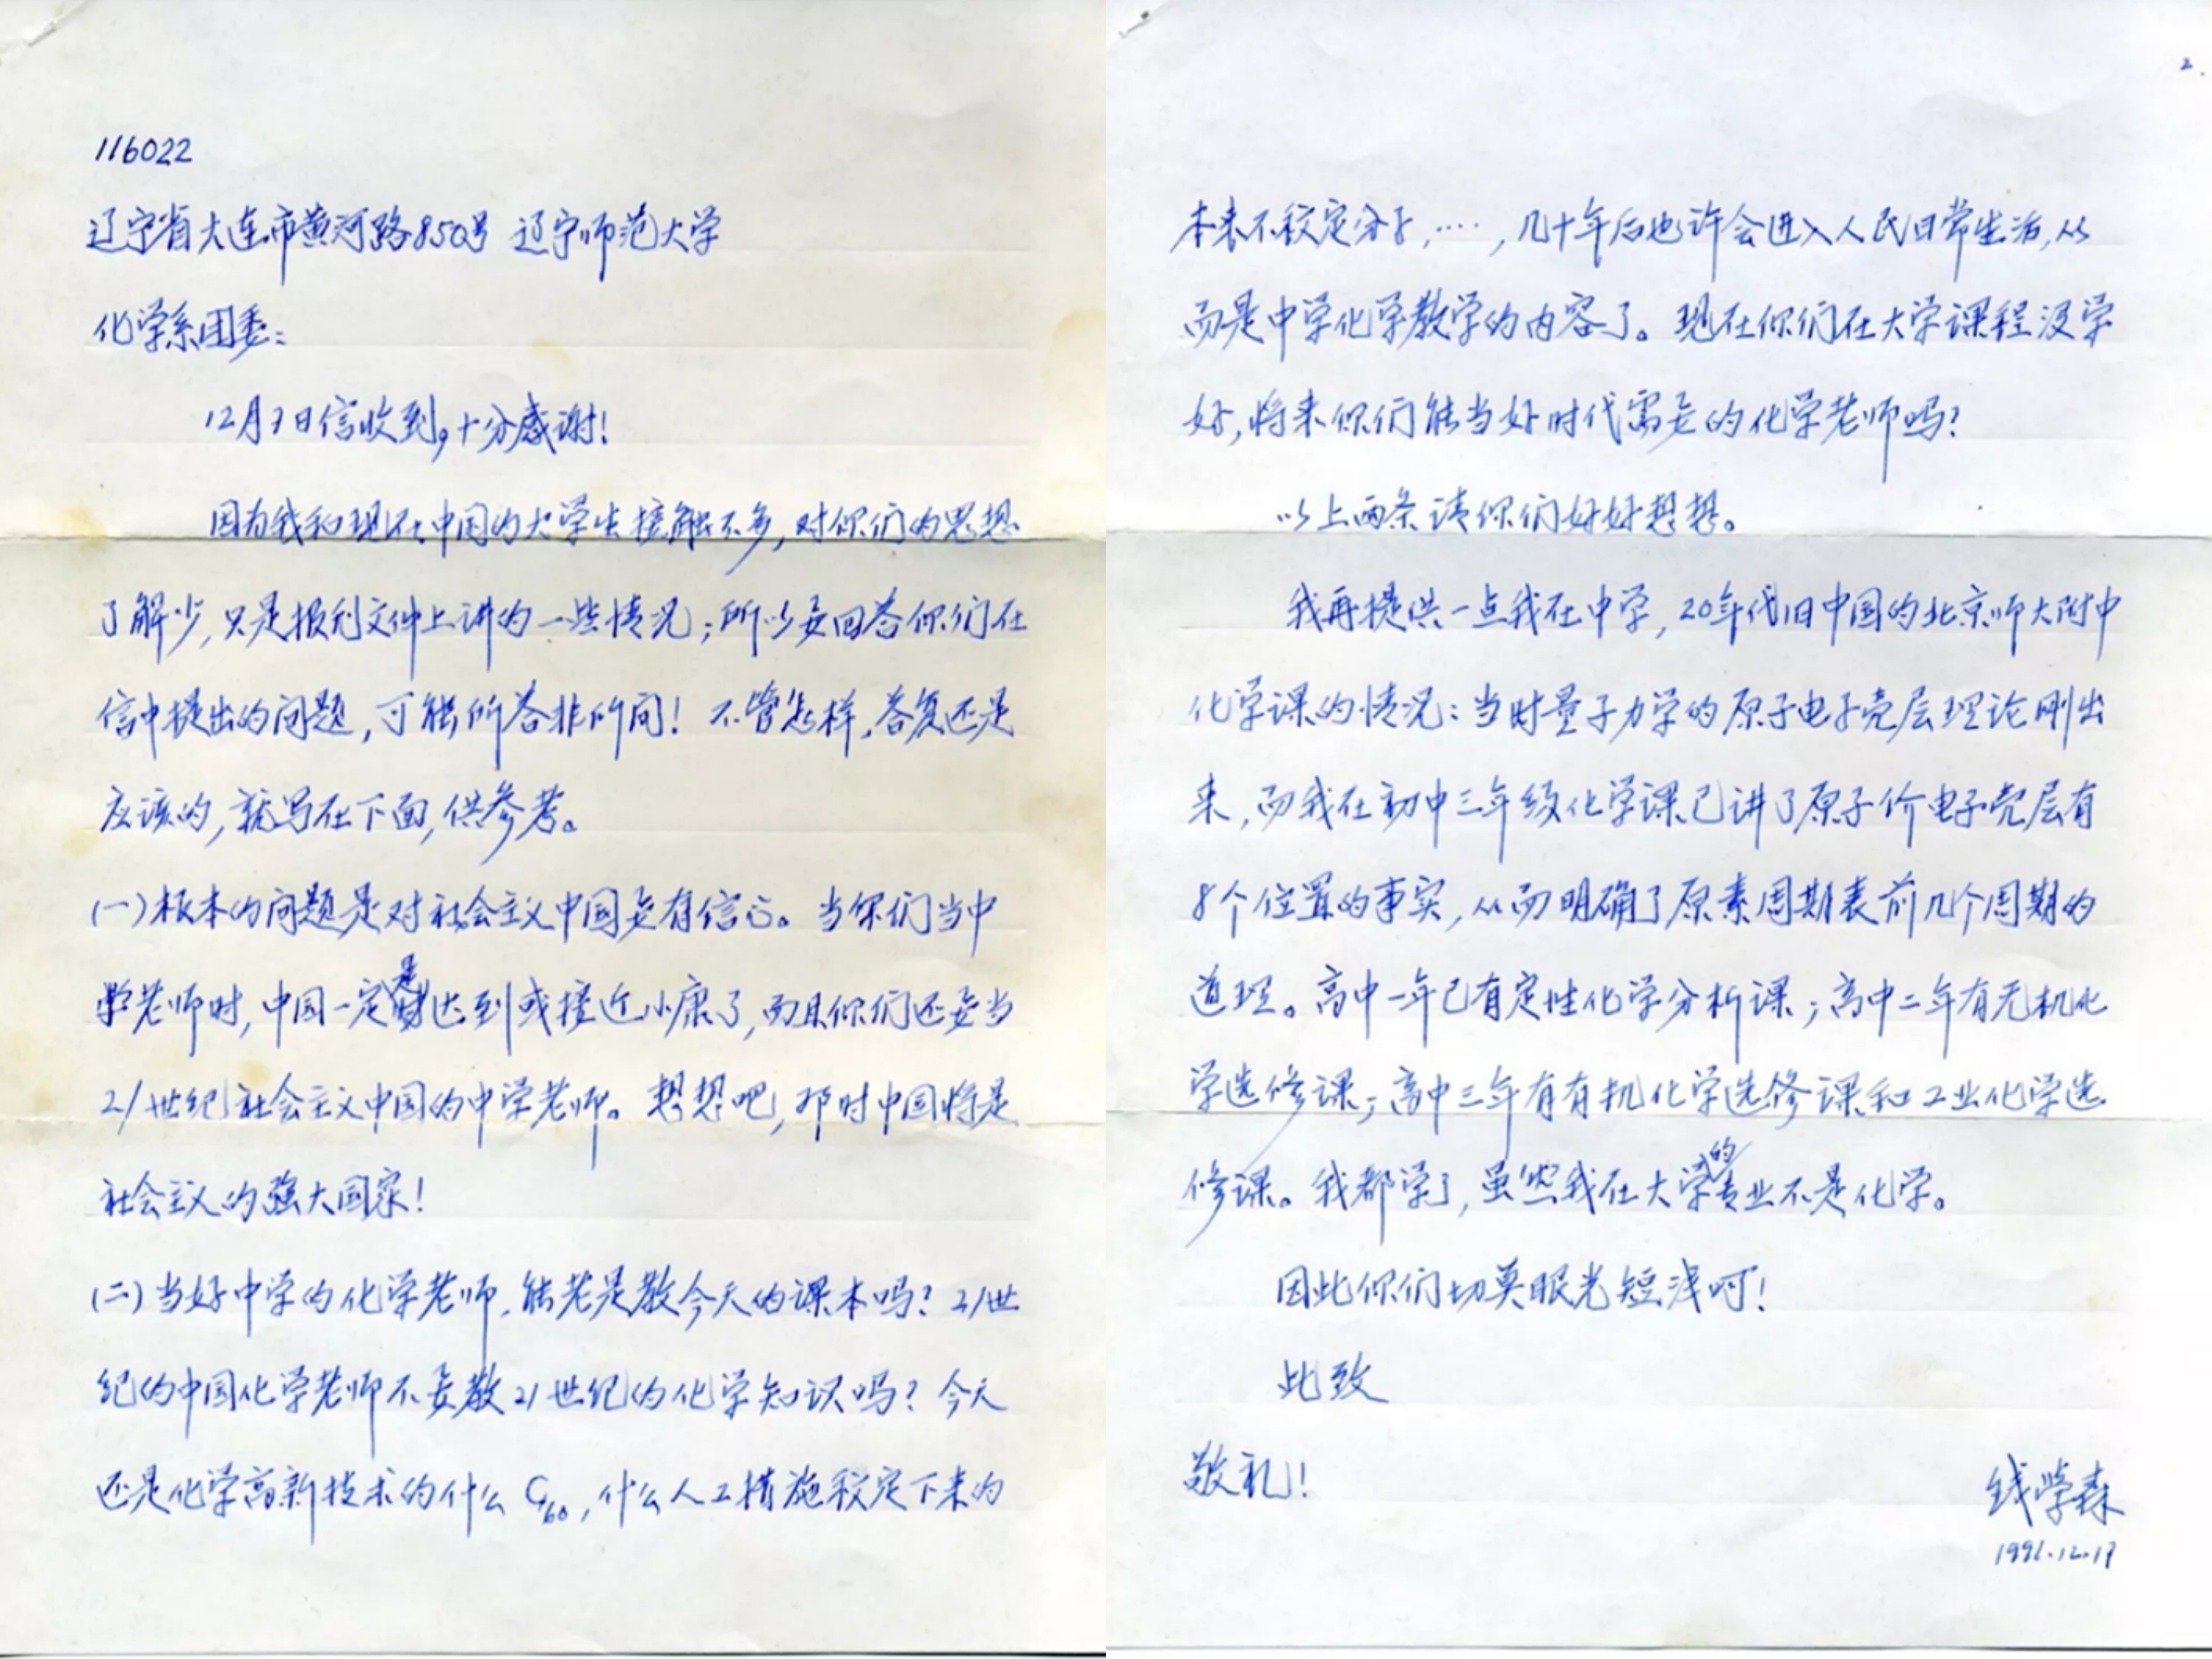 116022
辽宁省大连市黄河路850号 辽宁师范大学
化学系团委：
12月7日信收到，十分感谢！
因为我和现在中国的大学生接触不多，对你们的思想
了解少，只是报刊文件上讲的一些情况；所以要回答你们在
信中提出的问题，可能所答非所问！不管怎样，答复还是
应该的，就写在下面，供参考。
（一）根本的问题是对社会主义中国要有信心。当你们当中
学老师时，中国一定是达到或接近小康了，而且你们还要当
21世纪社会主义中国的中学老师。想想吧，那时中国将是
社会主义的强大国家！
（二）当好中学的化学老师，能老是教今天的课本吗？21世
纪的中国化学老师不要教21世纪的化学知识吗？今天
还是化学高新技术的什么C60，什么人工措施稳定下来的
2.
本来不稳定分子，……，几十年后也许会进入人民日常生活，从
而是中学化学教学的内容了。现在你们在大学课程没学
好，将来你们能当好时代需要的化学老师吗？
以上两条请你们好好想想。
我再提供一点我在中学，20年代旧中国的北京师大附中
化学课的情况：当时量子力学的原子电子壳层理论刚出
来，而我在初中三年级化学课已讲了原子价电子壳层有
8个位置的事实，从而明确了原素周期表前几个周期的
道理。高中一年已有定性化学分析课；高中二年有无机化
学选修课；高中三年有有机化学选修课和工业化学选
修课。我都学了，虽然我在大学的专业不是化学。
因此你们切莫眼光短浅呵！
此致
敬礼！
钱学森
1991.12.17